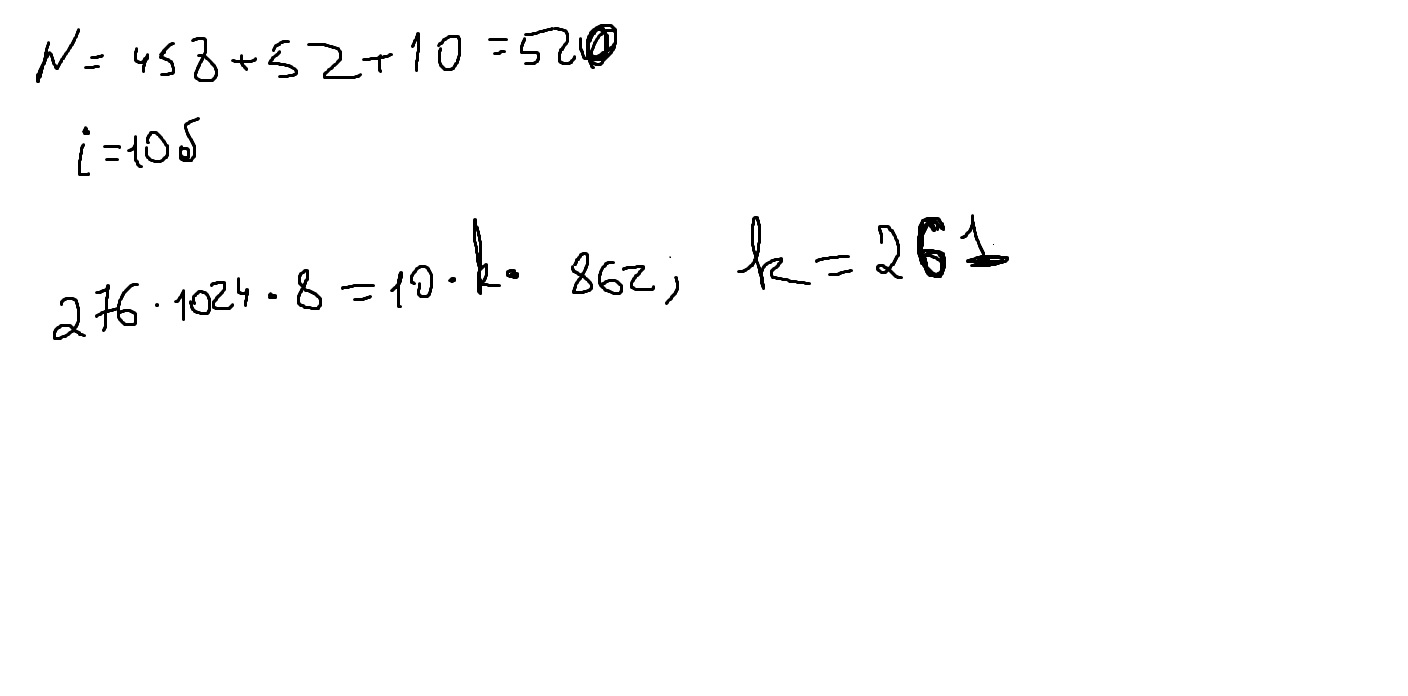 N = 458 + 52 + 10 = 520
i = 10б
276 · 1024 · 8 = 10 · k · 862; k = 261